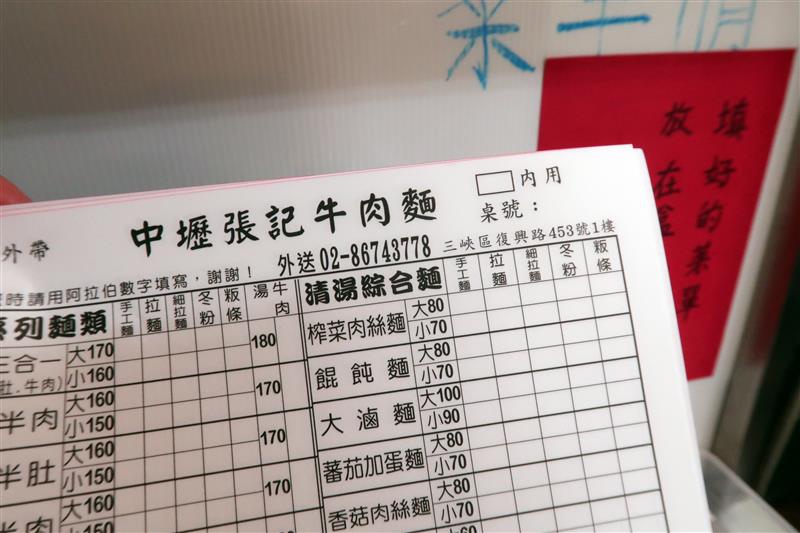 填好的菜單
放在盒
中壢張記牛肉麵
□內用
桌號：
外帶
外送02-86743778 三峽區復興路453號1樓
時請用阿拉伯數字填寫，謝謝！
列麵類 手工麵 拉麵 細拉麵 冬粉 粄條 牛肉湯
三合一 大170 180
肚.牛肉) 小160
半肉 大160 170
小150
半肚 大160 170
小150
牛肉 大160 170
小150
清湯綜合麵 手工麵 拉麵 細拉麵 冬粉 粄條
榨菜肉絲麵 大80
小70
餛飩麵 大80
小70
大滷麵 大100
小90
蕃茄加蛋麵 大80
小70
香菇肉絲麵 大80
小70